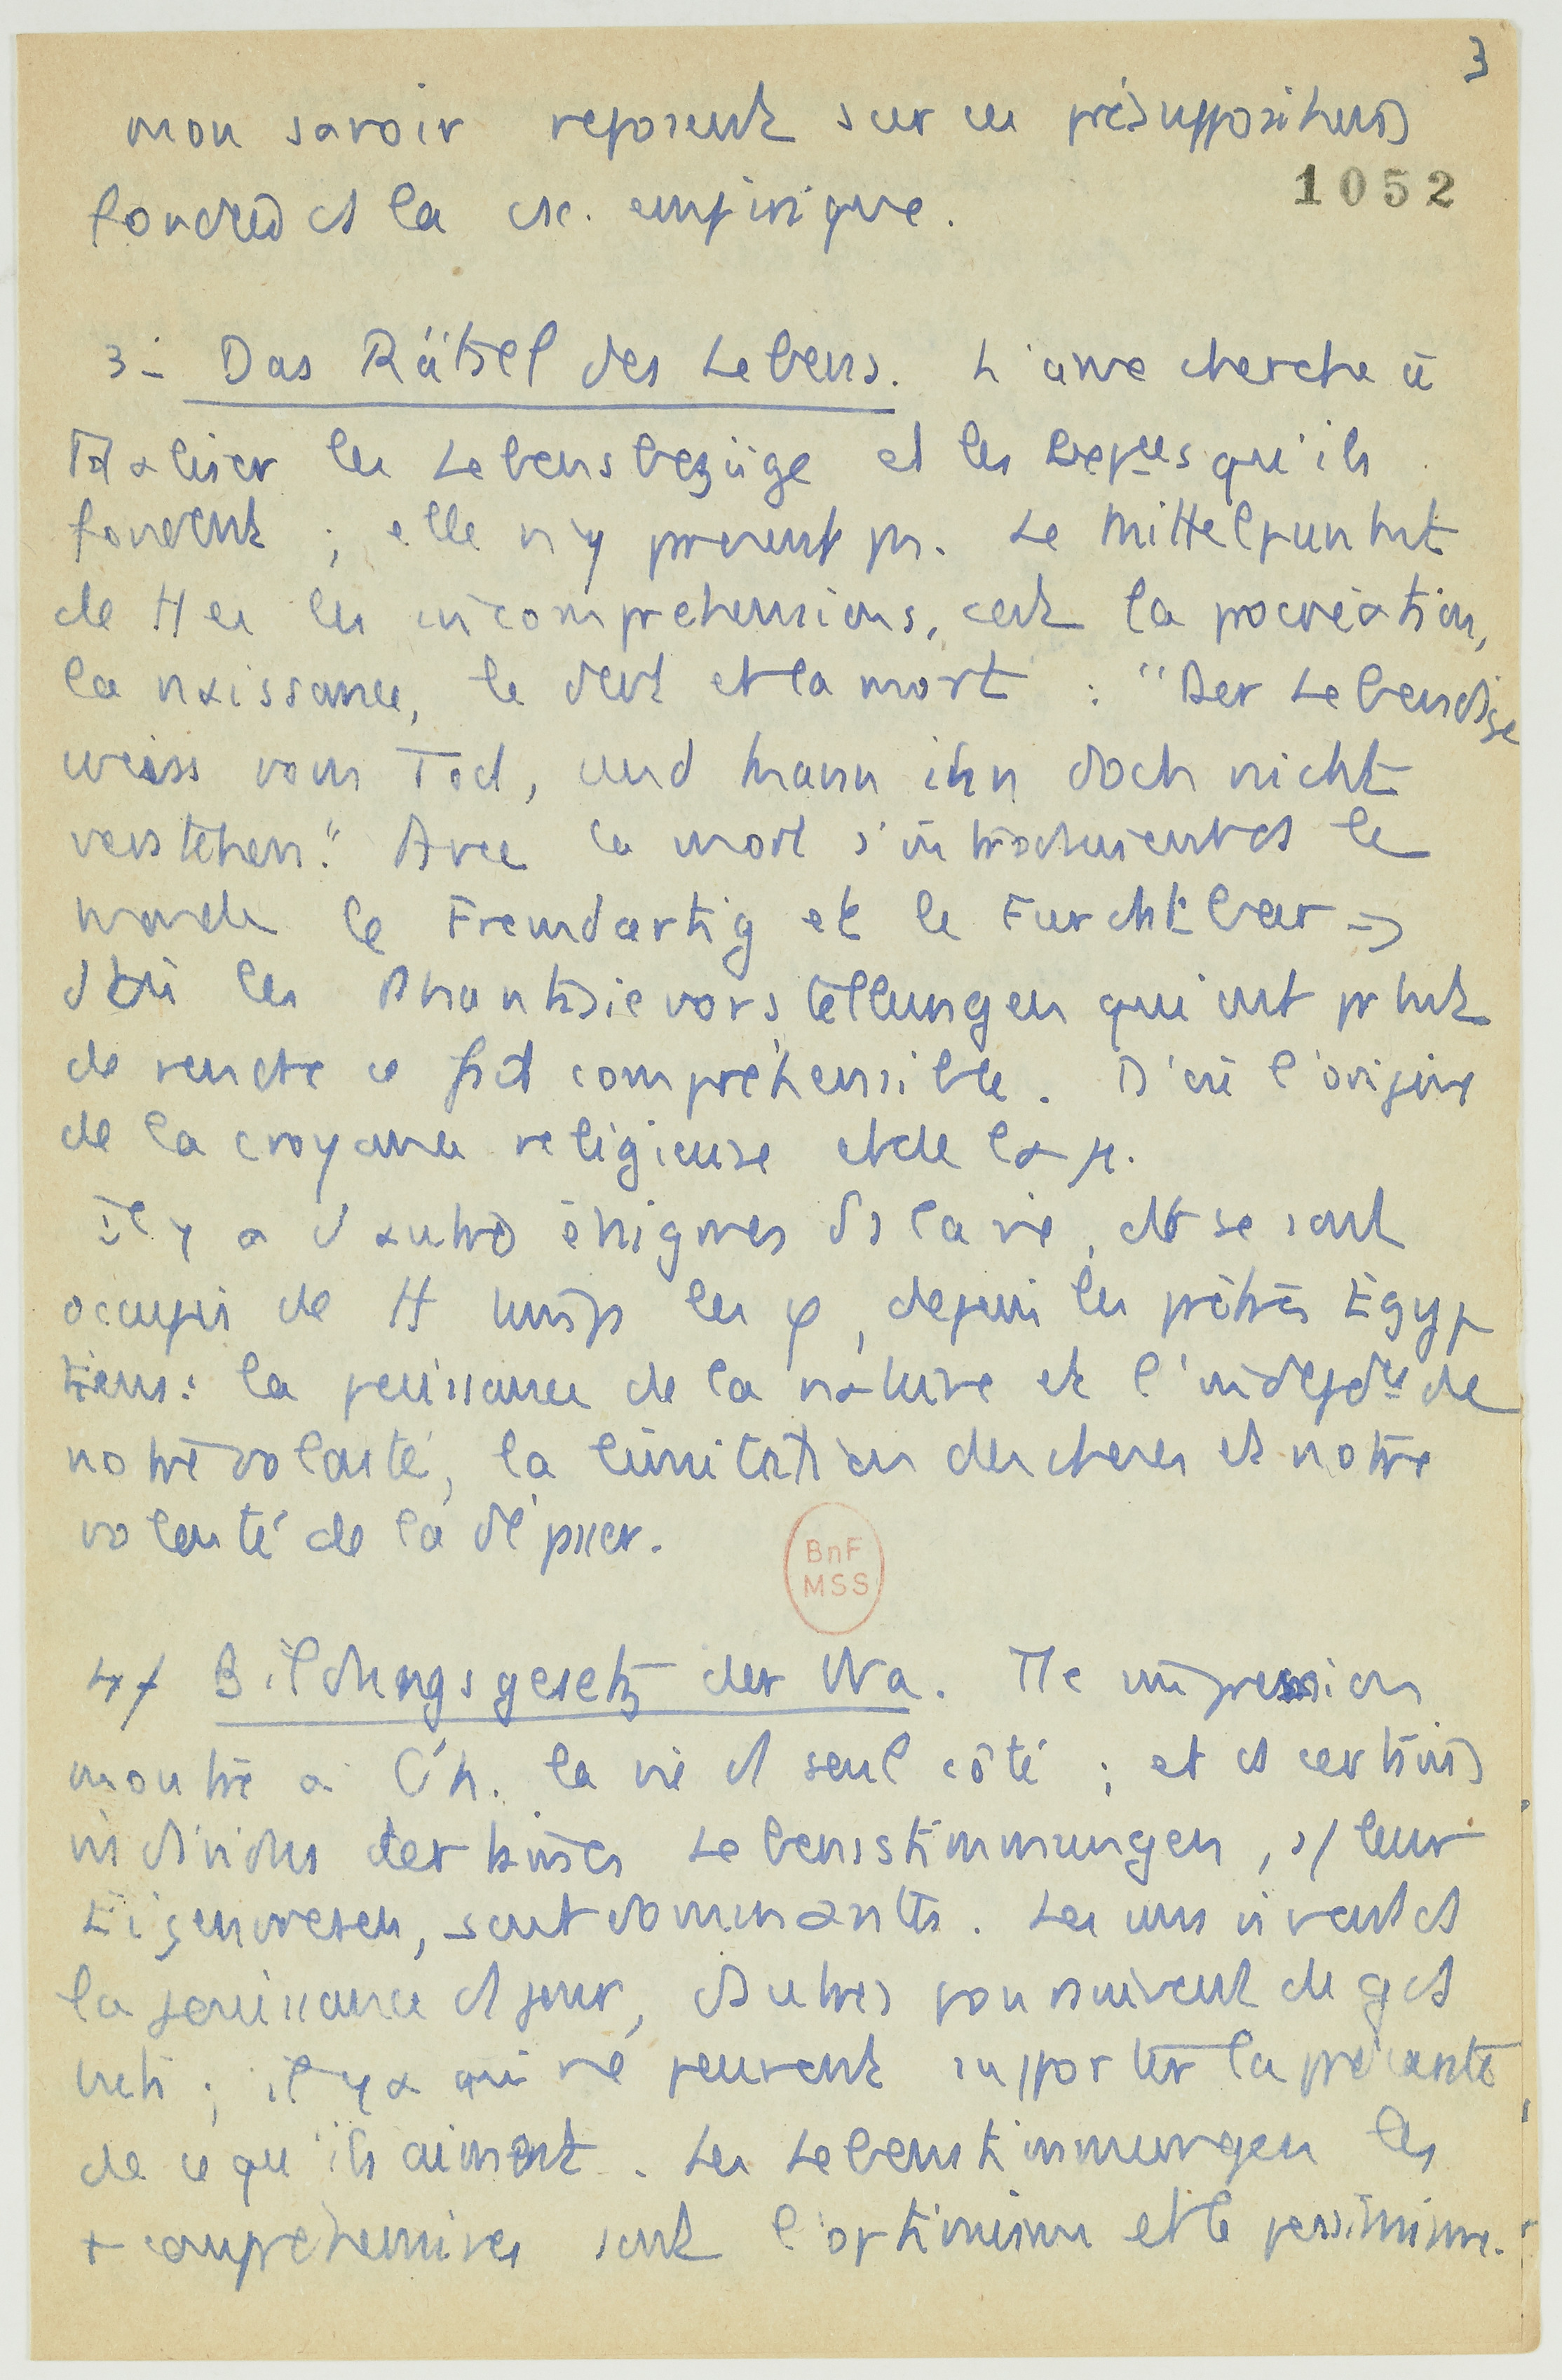 3
mon savoir reposent sur ces présuppositions
1052
fondées ds la csc. empirique.
3- Das Rätsel des Lebens. L'âme cherche à
totaliser les Lebensbezüge et les qu'ils
fondent ; elle n'y parvient ps. Le Mittelpunkt
de ttes les incompréhensions, c'est la procréation,
la naissance, le dvt et la mort : "Der Lebendige
weiss vom Tod, und kann ihn doch nicht
verstehen." Avec la mort s'introduisent ds le
monde le Fremdartig et le Furchtbar ->
d'où les Phantasievorstellungen qui ont pr but
de rendre ce fait compréhensible. D'où l'origine
de la croyance religieuse et de la μ.
Il y a d'autres énigmes ds la vie, dt se sont
occupés de tt temps les φ, depuis les prêtres Égyp
tiens : la puissance de la nature et l'indépdce de
notre volonté, la limitation des choses et notre
volonté de la dépasser.
BnF
MSS
4/ Bildungsgesetz der Wa. Tte impression
montre à l'h. la vie d'1 seul côté ; et ds certains
individus certaines Lebensstimmungen, s/ leur
Eigenwesen, sont dominantes. Les uns vivent ds
la jouissance d'1 jour, d'autres poursuivent de gds
buts ; il y a qui ne peuvent supporter la précarité
de ce qu'ils aiment. Les Lebenstimmungen les
+ compréhensives sont l'optimisme et le pessimisme.